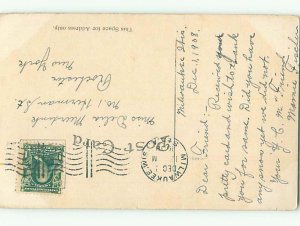 This Space for Address only.
Post Card
MILWAUKEE
WIS
DEC
Miss Delia
No. Herman St.
Rochester
New York
Milwaukee Wis.
Dec. 1, 1908.
Dear Friend: Received your
pretty card and wish to thank
you for same. Did you have
any snow yet we did not.
Your P. C. Friend
Minnie